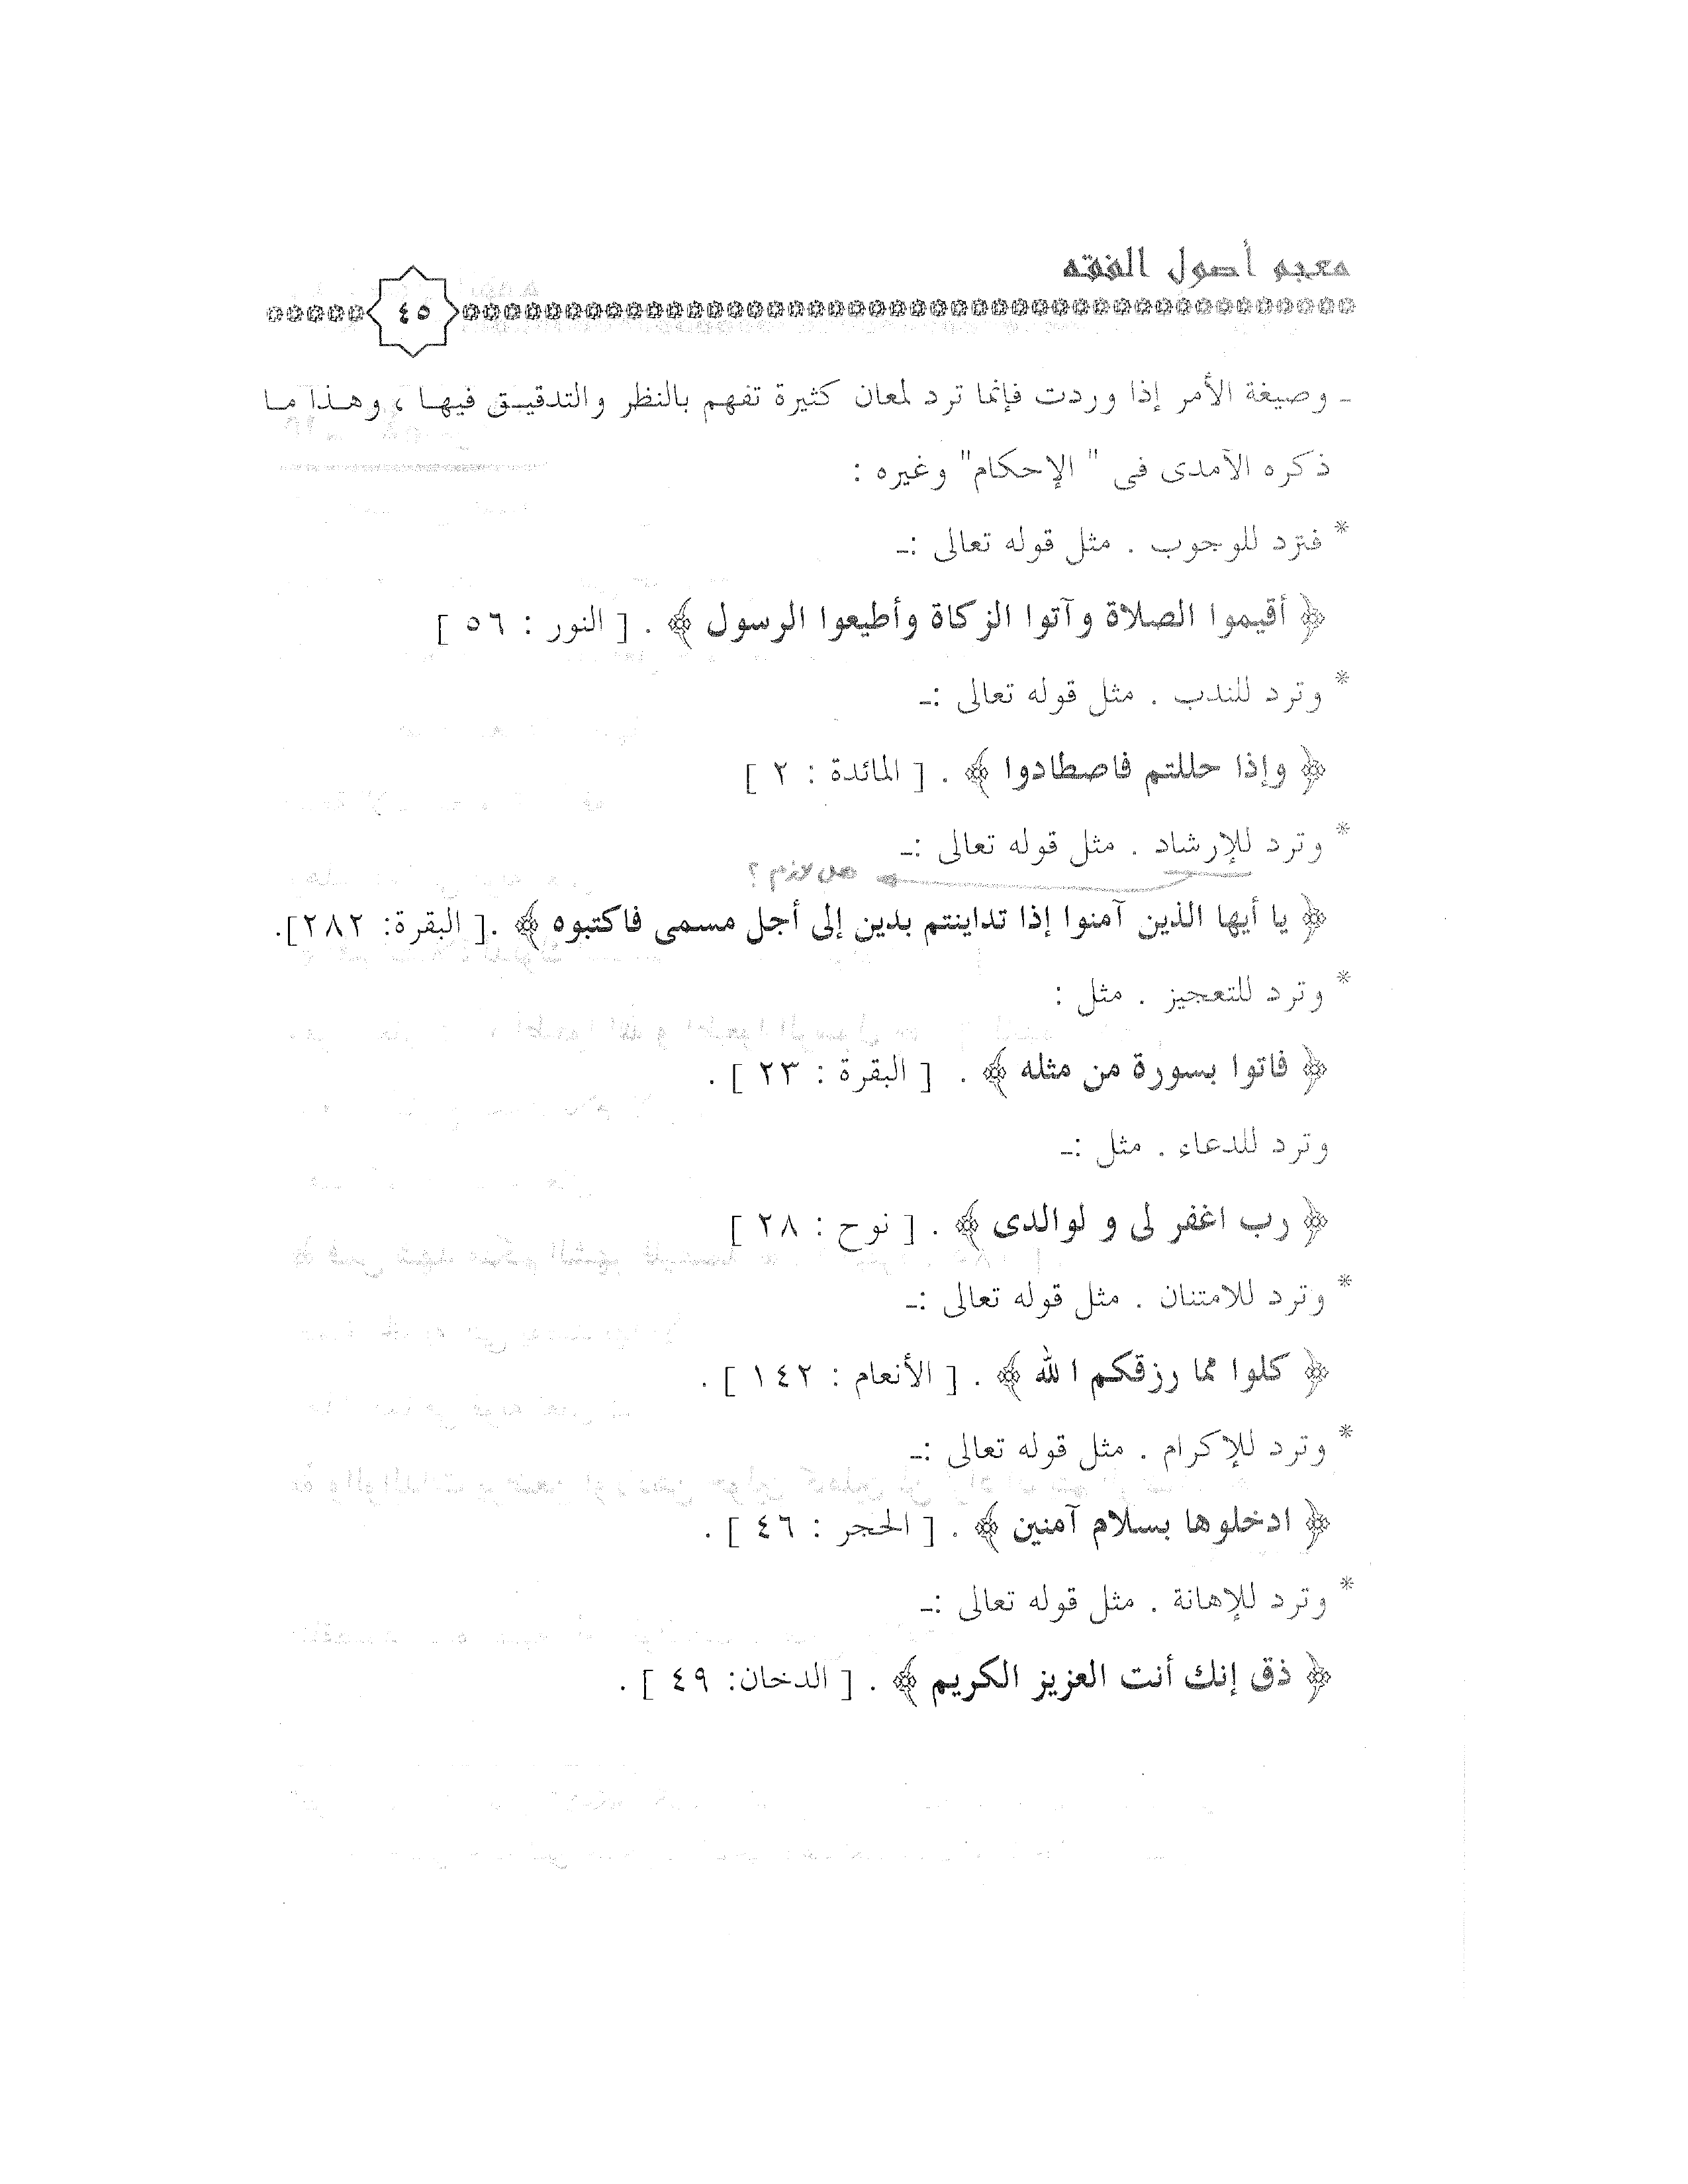 معجم أصول الفقه
٤٥
ـ وصيغة الأمر إذا وردت فإنما ترد لمعان كثيرة تفهم بالنظر والتدقيق فيها ، وهذا ما
ذكره الآمدى فى " الإحكام" وغيره :
* فترد للوجوب . مثل قوله تعالى :ـ
﴿ أقيموا الصلاة وآتوا الزكاة وأطيعوا الرسول ﴾ . [ النور : ٥٦ ]
* وترد للندب . مثل قوله تعالى :ـ
﴿ وإذا حللتم فاصطادوا ﴾ . [ المائدة : ٢ ]
* وترد للإرشاد . مثل قوله تعالى :ـ
﴿ يا أيها الذين آمنوا إذا تداينتم بدين إلى أجل مسمى فاكتبوه ﴾ .[ البقرة: ٢٨٢].
* وترد للتعجيز . مثل :
﴿ فاتوا بسورة من مثله ﴾ . [ البقرة : ٢٣ ] .
وترد للدعاء . مثل :ـ
﴿ رب اغفر لى و لوالدى ﴾ . [ نوح : ٢٨ ]
* وترد للامتنان . مثل قوله تعالى :ـ
﴿ كلوا مما رزقكم الله ﴾ . [ الأنعام : ١٤٢ ] .
* وترد للإكرام . مثل قوله تعالى :ـ
﴿ ادخلوها بسلام آمنين ﴾ . [ الحجر : ٤٦ ] .
* وترد للإهانة . مثل قوله تعالى :ـ
﴿ ذق إنك أنت العزيز الكريم ﴾ . [ الدخان: ٤٩ ] .